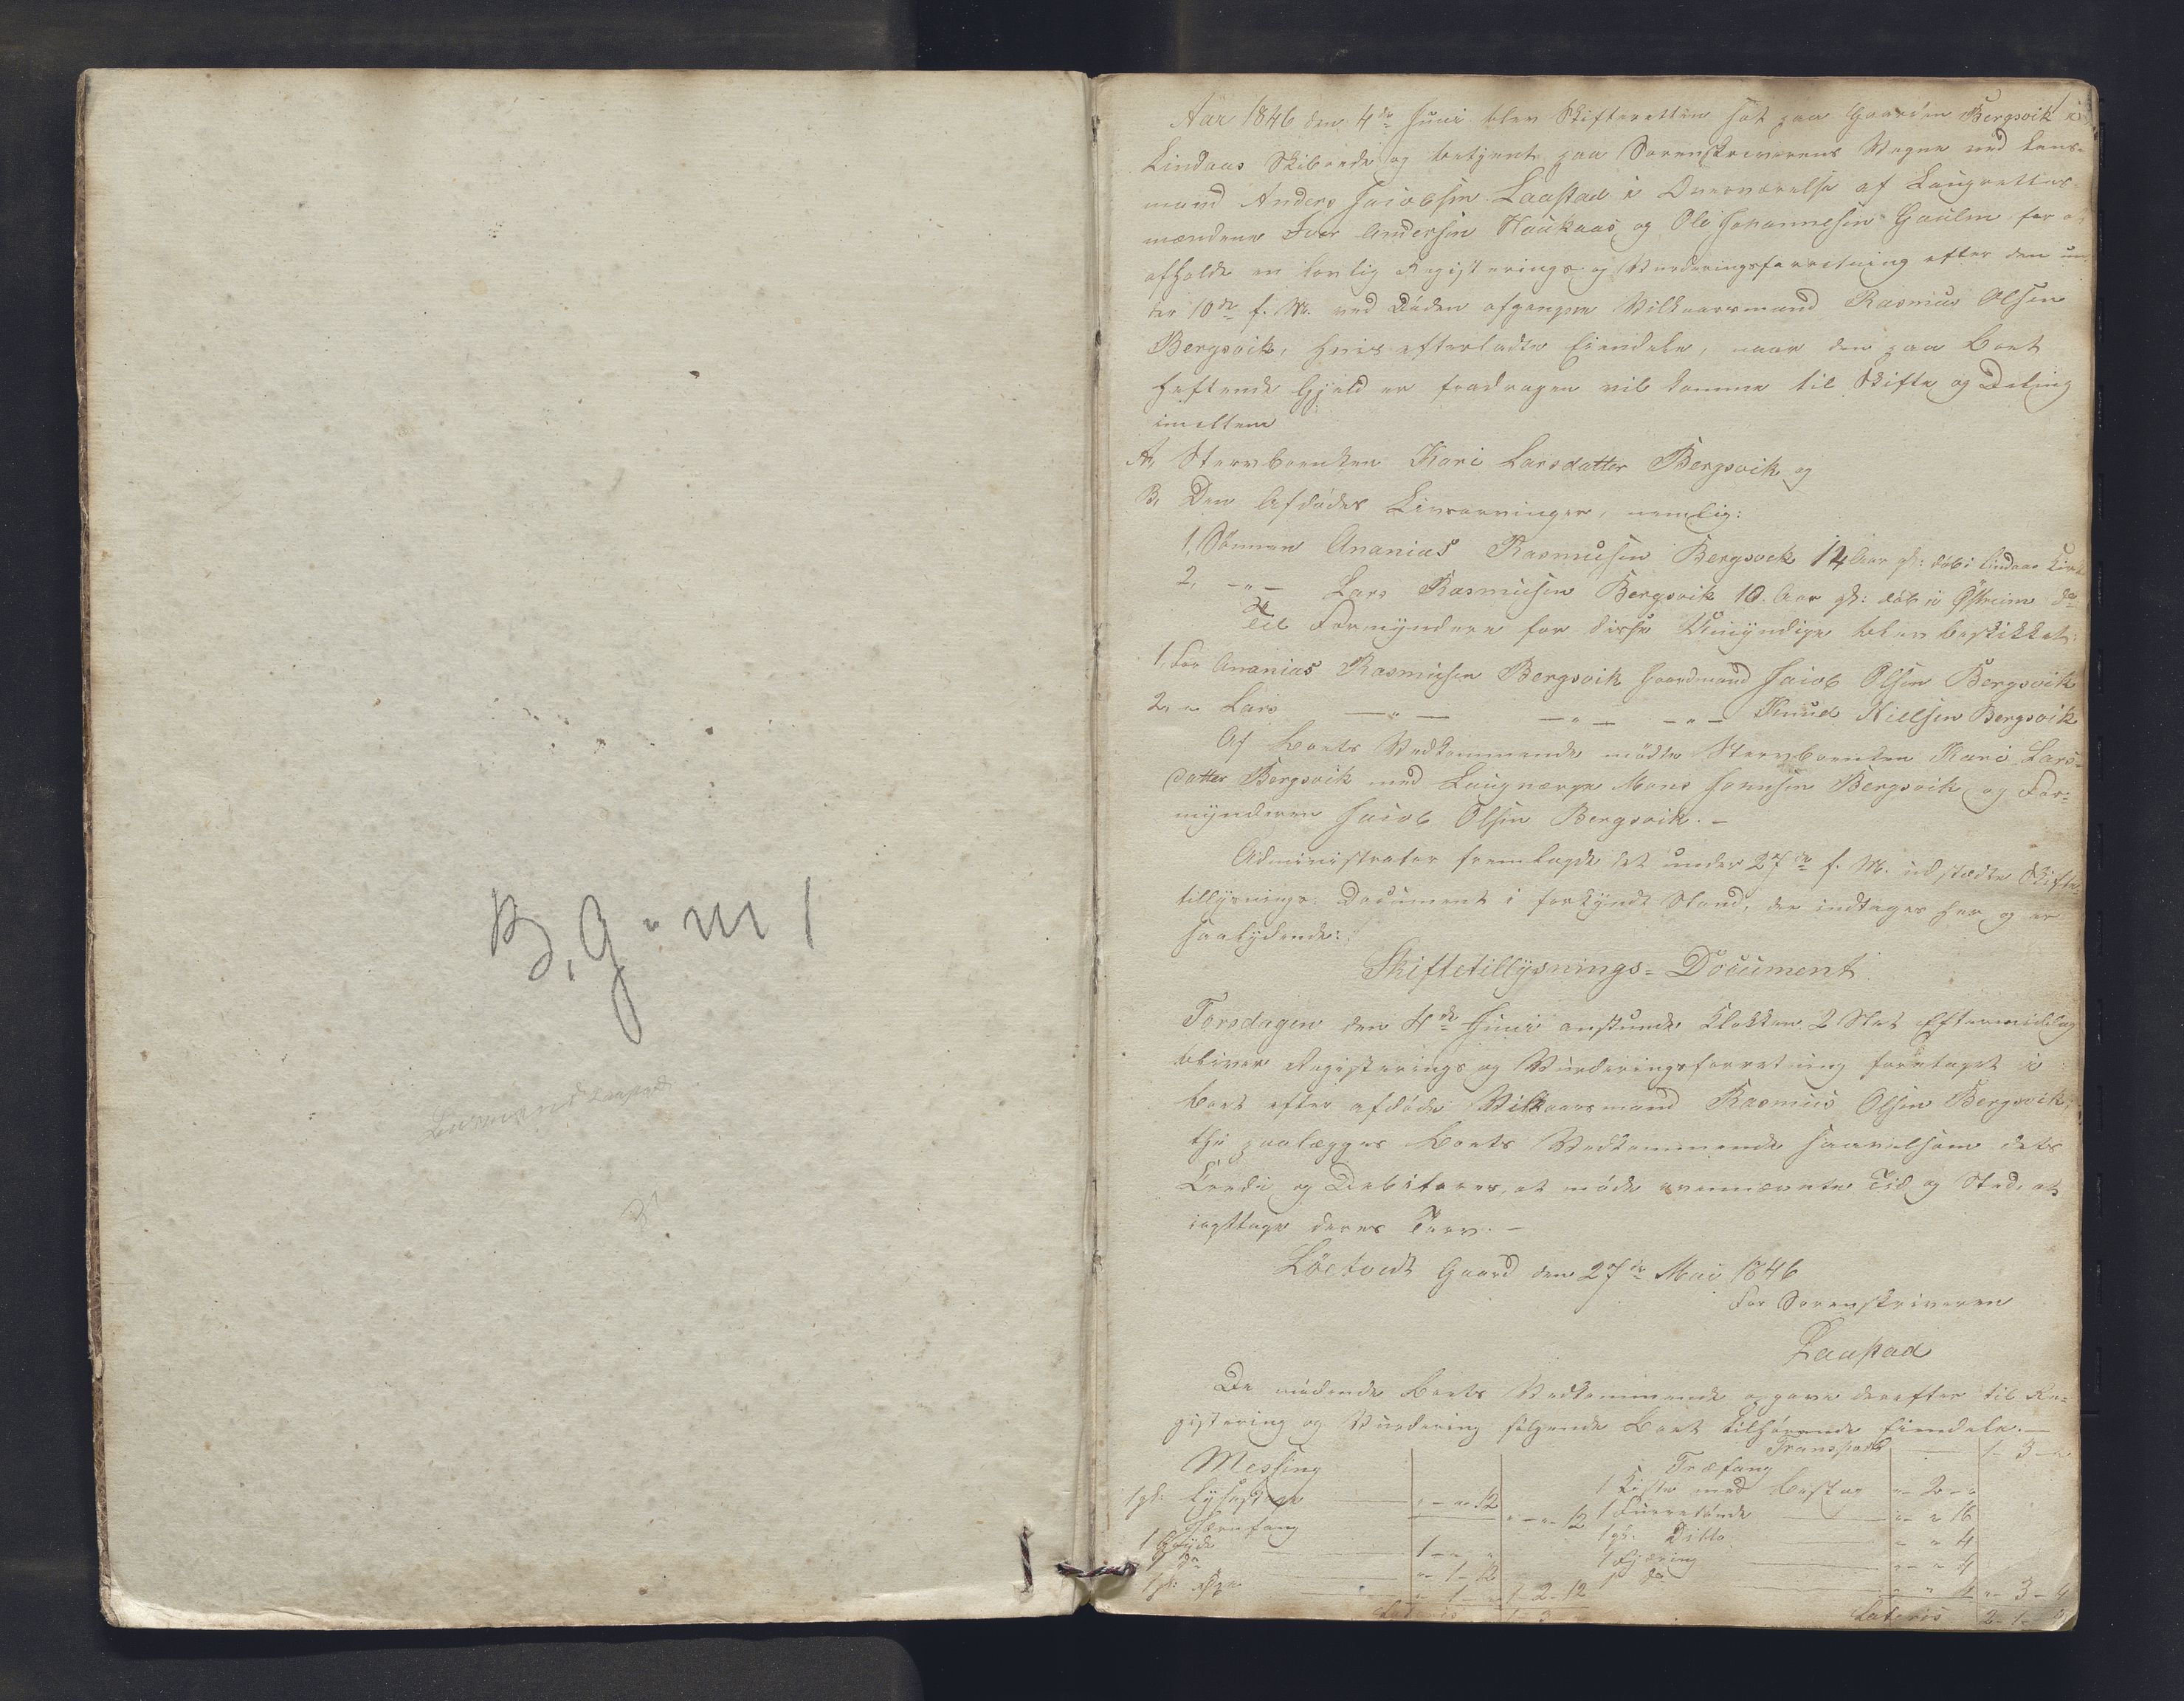 B, G " m 1
Lensmand Laastad
Aar 1846 den 4de Juni blev Skifteretten sat paa Gaarden Bergsvik i
Lindaas Skibrede og betjent paa Sorenskriverens Vegne ved Lens-
mand Anders Jacobsen Laastad i Overværelse af Laugrettes-
mændene Iver Andersen Haukaas og Ole Johannesen Gaulen for at
afholde en lovlig Registerings og Vurderingsforretning efter den un-
der 10de f. M. ved Døden afgangne Vilkaarsmand Rasmus Olsen
Bergsvik, hvis efterladte Eiendele, naar den paa Boet
heftende Gjæld er fradragen vil komme til Skifte og Deling
imellem
A, Stervboenken Kari Larsdatter Bergsvik og
B, Den Afdødes Livsarvinger, nemlig:
1, Sønnen Ananias Rasmusen Bergsvik 14 Aar gl: døbt i Lindaas Kirke
2, -"- Lars Rasmusen Bergsvik 10 Aar gl: døbt i Østreim do
Til Formyndere for disse Umyndige blev beskikket:
1, For Ananias Rasmusen Bergsvik Gaardmand Jacob Olsen Bergsvik
2, " Lars -"- -"- -"- Knud Nillsen Bergsvik
Af Boets Vedkommende mødte Stervboenken Kari Lars-
datter Bergsvik med Laugværge Mons Johnsen Bergsvik og For-
mynderen Jacob Olsen Bergsvik. -
Administrator fremlagde det under 27de f. M. udstædte Skifte-
tillysnings-Document i forkyndt Stand, der indtages her og er
saalydende:
Skiftetillysnings-Document
Torsdagen den 4de Juni anstundende Klokken 2 Slet Eftermiddag
bliver Registerings og Vurderingsforretning foretaget i
Boet efter afdøde Vilkaarsmand Rasmus Olsen Bergsvik,
thi paalægges Boets Vedkommende saavelsom dets
Credi og Debitorer, at møde ovennævnte Tid og Sted, at
iagttage deres Tarv. -
Løetvedt Gaard den 27de Mai 1846
For Sorenskriveren
Laastad
De mødende Boets Vedkommende opgave derefter til Re-
gistering og Vurdering følgende Boet tilhørende Eiendele. -
Messing
1 gl: Lysestage " - " 12 " - " 12
Jernfang
1 Gryde 1 - " "
1 do " - 1 - 12
1 gl: " 1 - " 1 - 2 - 12
Lateris 1 - 3 - "
Transport 1 - 3 - "
Træfang
1 Kiste med Beslag " - 2 - "
1 Tønde " - " 16
1 gl. Ditto " - " 4
1 Fjæring " - " 4
1 do " " 4 " - 3 - 4
Lateris 2 - 1 -